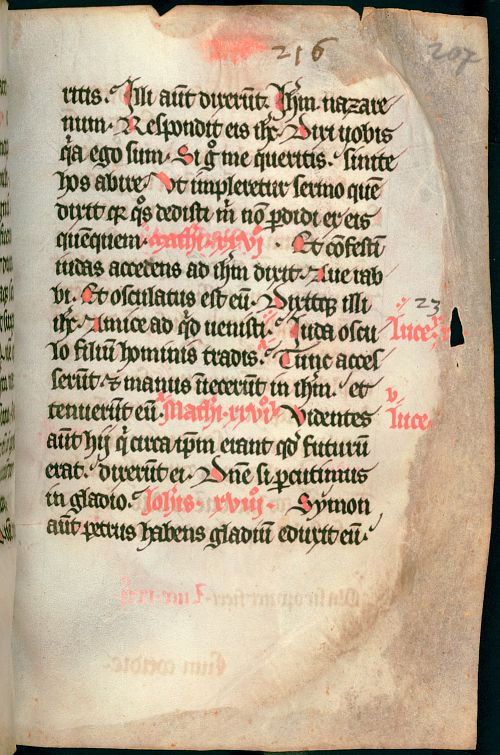 216
207
ritis. Illi aūt dixerūt. Ihm̄ nazare
num. Respondit eis ihc̄. Dixi uobis
q̄a ego sum. Si g̊ me queritis. sinite
hos abire. Ut impleretur sermo quē
dixit qr̄ q̊s dedisti m̄ nō ꝑdidi ex eis
quēquem. Mathi. xxvj. Et cōfestī
iudas accedens ad ihm̄ dixit. Aue rab
bi. Et osculatus est eū. Dixitqꝫ illi
23
ihc̄. Amice ad q̊d uenisti. Iuda oscu
Luce.
lo filiū hominis tradis. Tunc acces
serūt. ⁊ manus īiecerūt in ihm̄. et
tenuerūt eū. Mathi. xxvi. Videntes
Luce.
aūt hij q̄ circa ip̄m erant qd̄ futurū
erat. dixerūt ei. Dn̄e si ꝑcutimus
in gladio. Johis. xviij. Symon
aūt petrus habens gladiū eduxit eū.